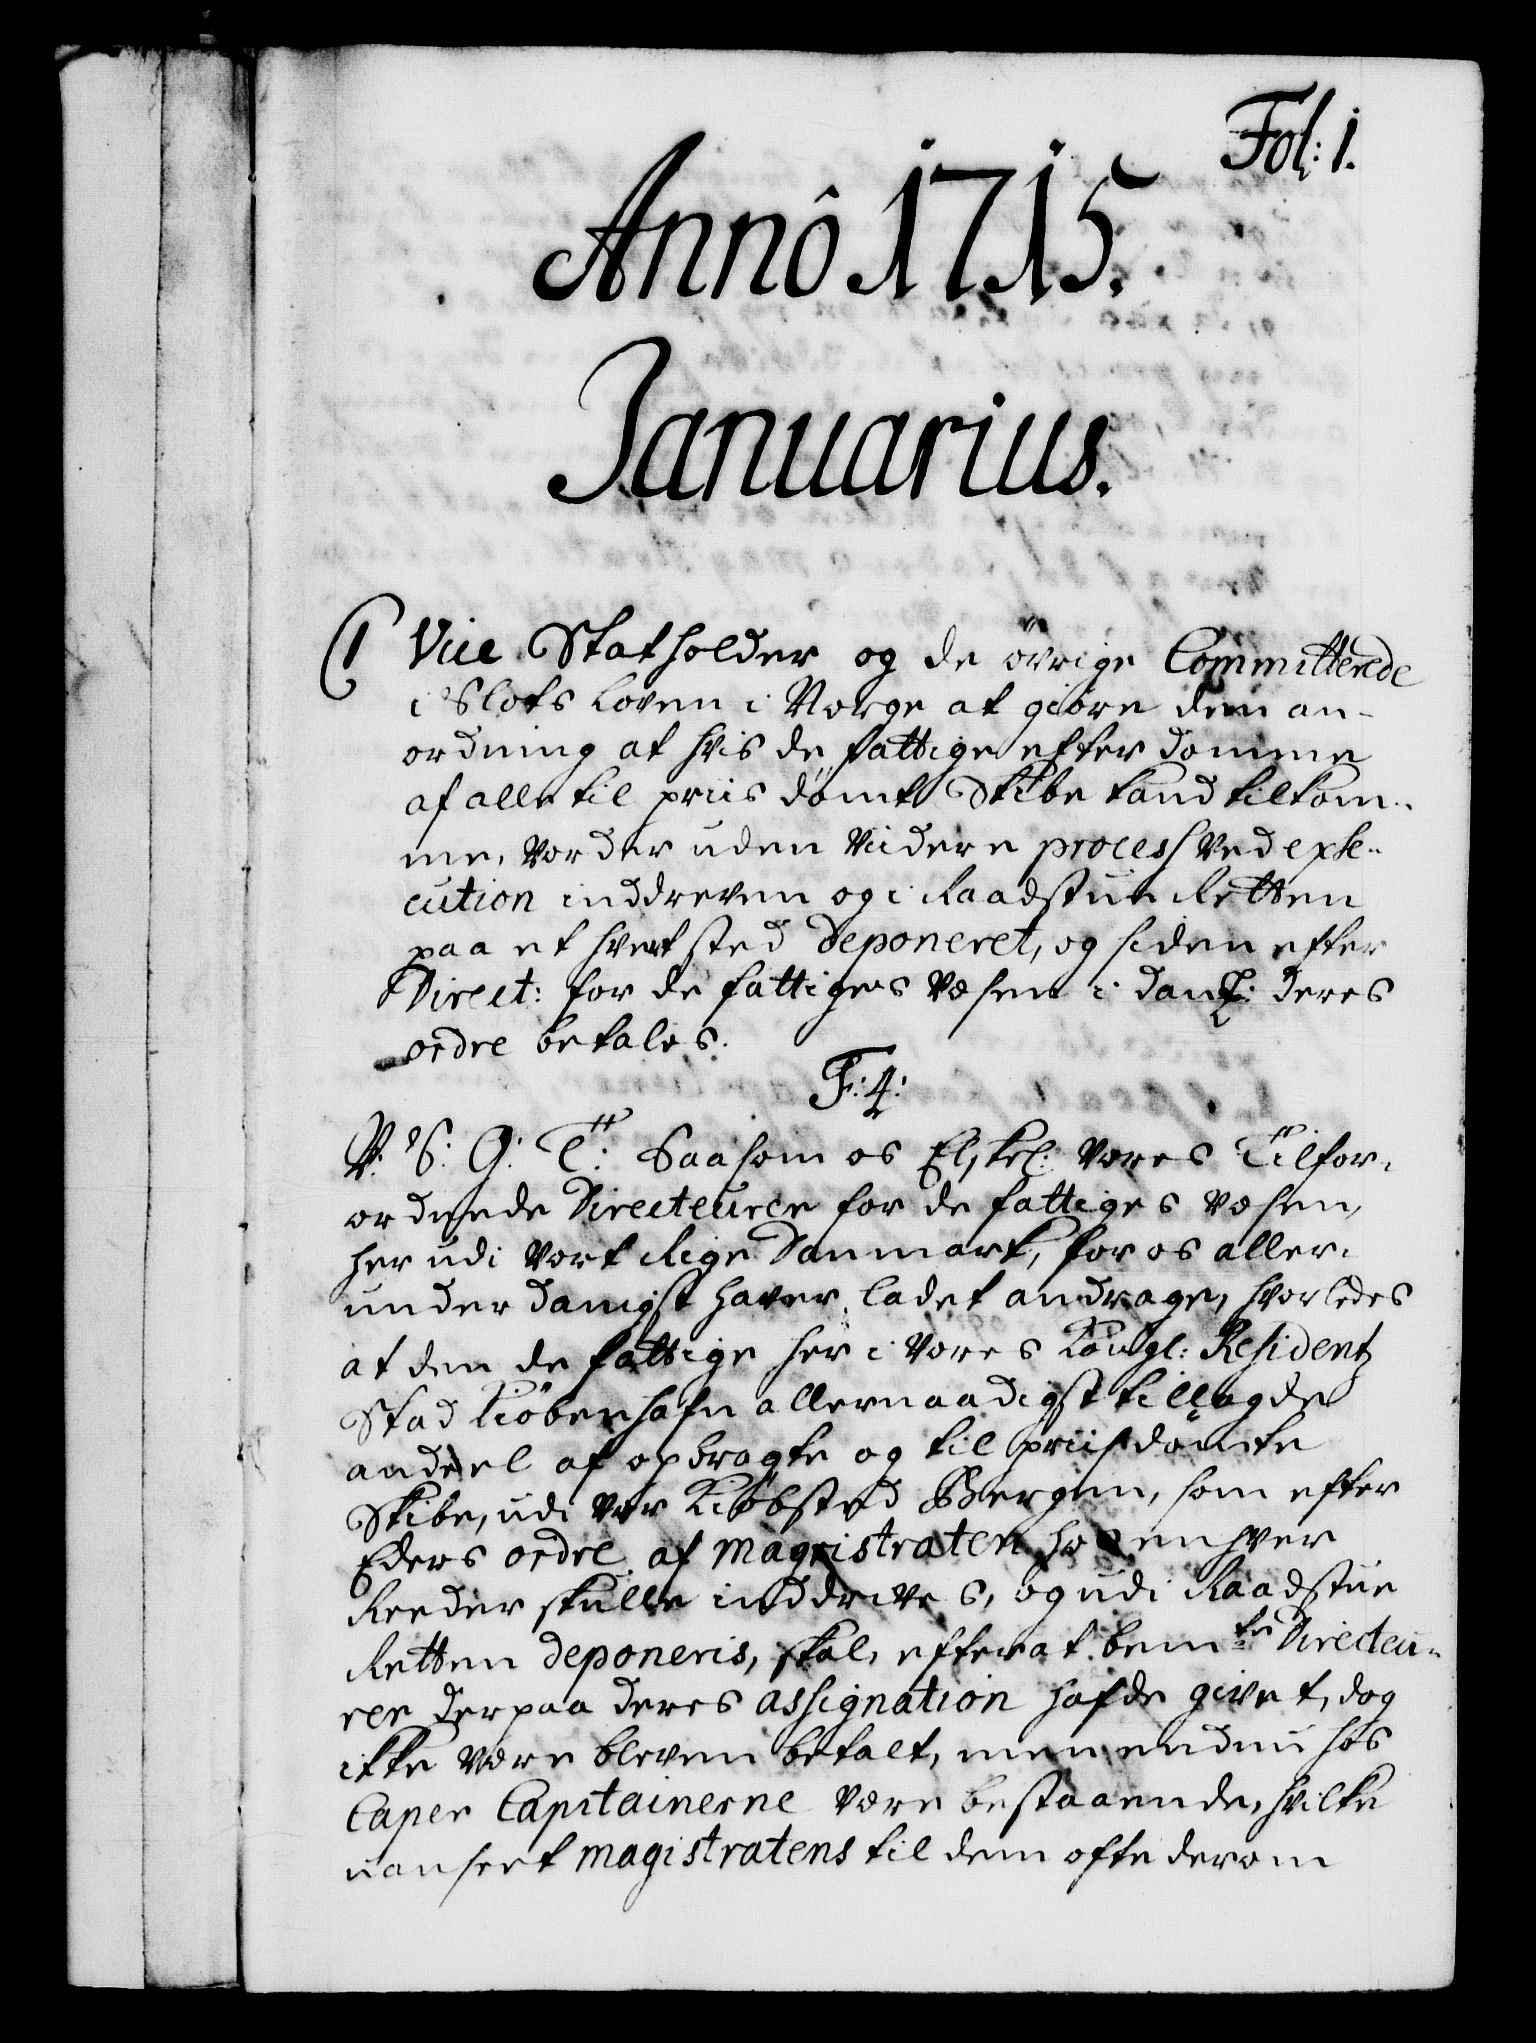 Fol: 1.
Annô 1715.
Januarius.
1 Vice Statholder og de øvrige Committerede
i Slots Loven i Norge at giøre den an-
ordning at hvis de fattige efter Domme
af alle til priis dömte Skibe kand tilkom-
me, vorder uden videre process ved exse-
cution inddreven og i Raadstue Retten
paa et hvert sted deponeret, og siden efter
Direct: for de fattiges Væsen i Danm: deres
ordre betales.
F: 4:
V. S. G. T: Saasom os Elskel: Vores Tilfor-
ordnede Directeurer for de fattiges Væsen,
her udi Vort Rige Danmark, for os aller-
underdanigst haver ladet andrage, hvorledes
at den de fattige her i Vores Kongl: Residentz
Stad Kiöbenhafn allernaadigst tillagde
andeel af opbragte og til priis dömte
Skibe, udi Vor Kiöbsted Bergen, som efter
Eders ordre af magistraten hos enhver
Reeder skulle inddrives, og udi Raadstue
Retten deponeris, skal, efter at bem.te Directeu-
rer derpaa deres assignation hafde givet, dog
ikke være bleven betalt, men endnu hos
Caper Capitainerne være bestaaende, hvilke
uanseet magistratens til dem ofte derom